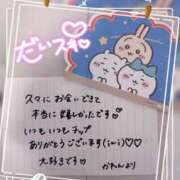 だいスキ
久々に お会いできて
本当に 嬉しかったです♡
いつも いつも チップ
ありがとうございます(;ω;)♡
大好きです♡
かれんより